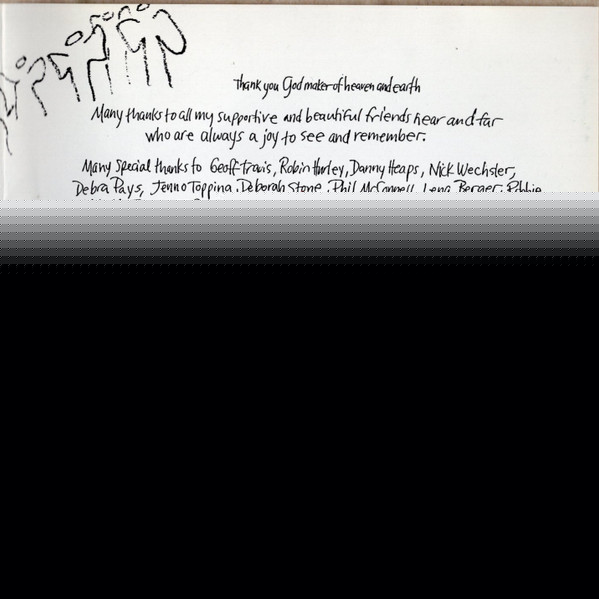 Thank you God maker of heaven and earth
Many thanks to all my supportive and beautiful friends near and far
who are always a joy to see and remember.
Many special thanks to Geoff Travis, Robin Hurley, Danny Heaps, Nick Wechsler,
Debra Pays, Jenno Toppina, Deborah Stone, Phil McConnell, Lena Berger,